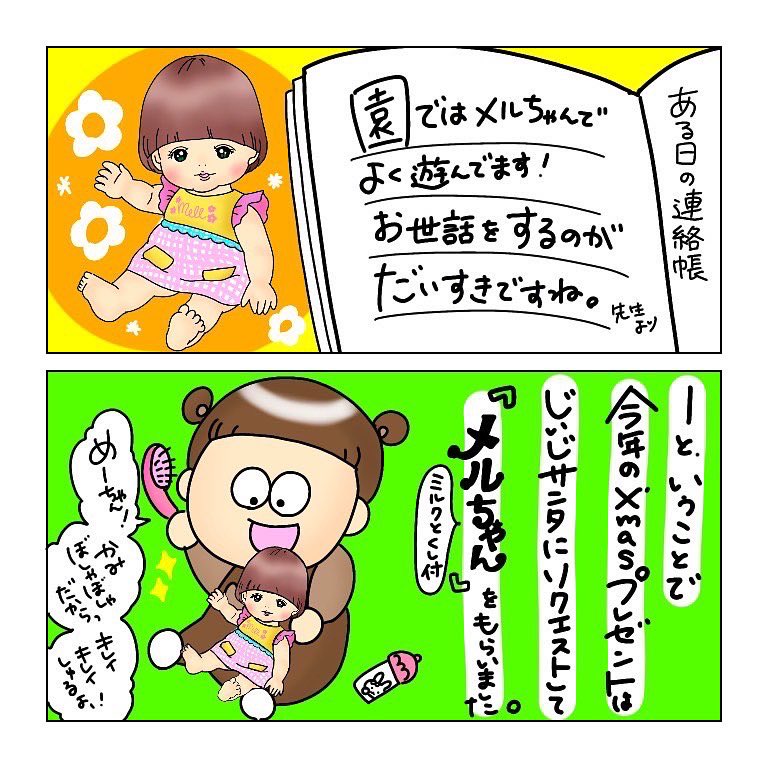 ある日の連絡帳
園ではメルちゃんで
よく遊んでます！
お世話をするのが
だいすきですね。
先生より
Mell
ーと、いうことで
今年のXmasプレゼントは
じぃじサンタにリクエストして
『メルちゃん』をもらいました。
ミルクとくし付
めーちゃん！
かみぼしゃぼしゃだからっ
キレイキレイしゅるよ！